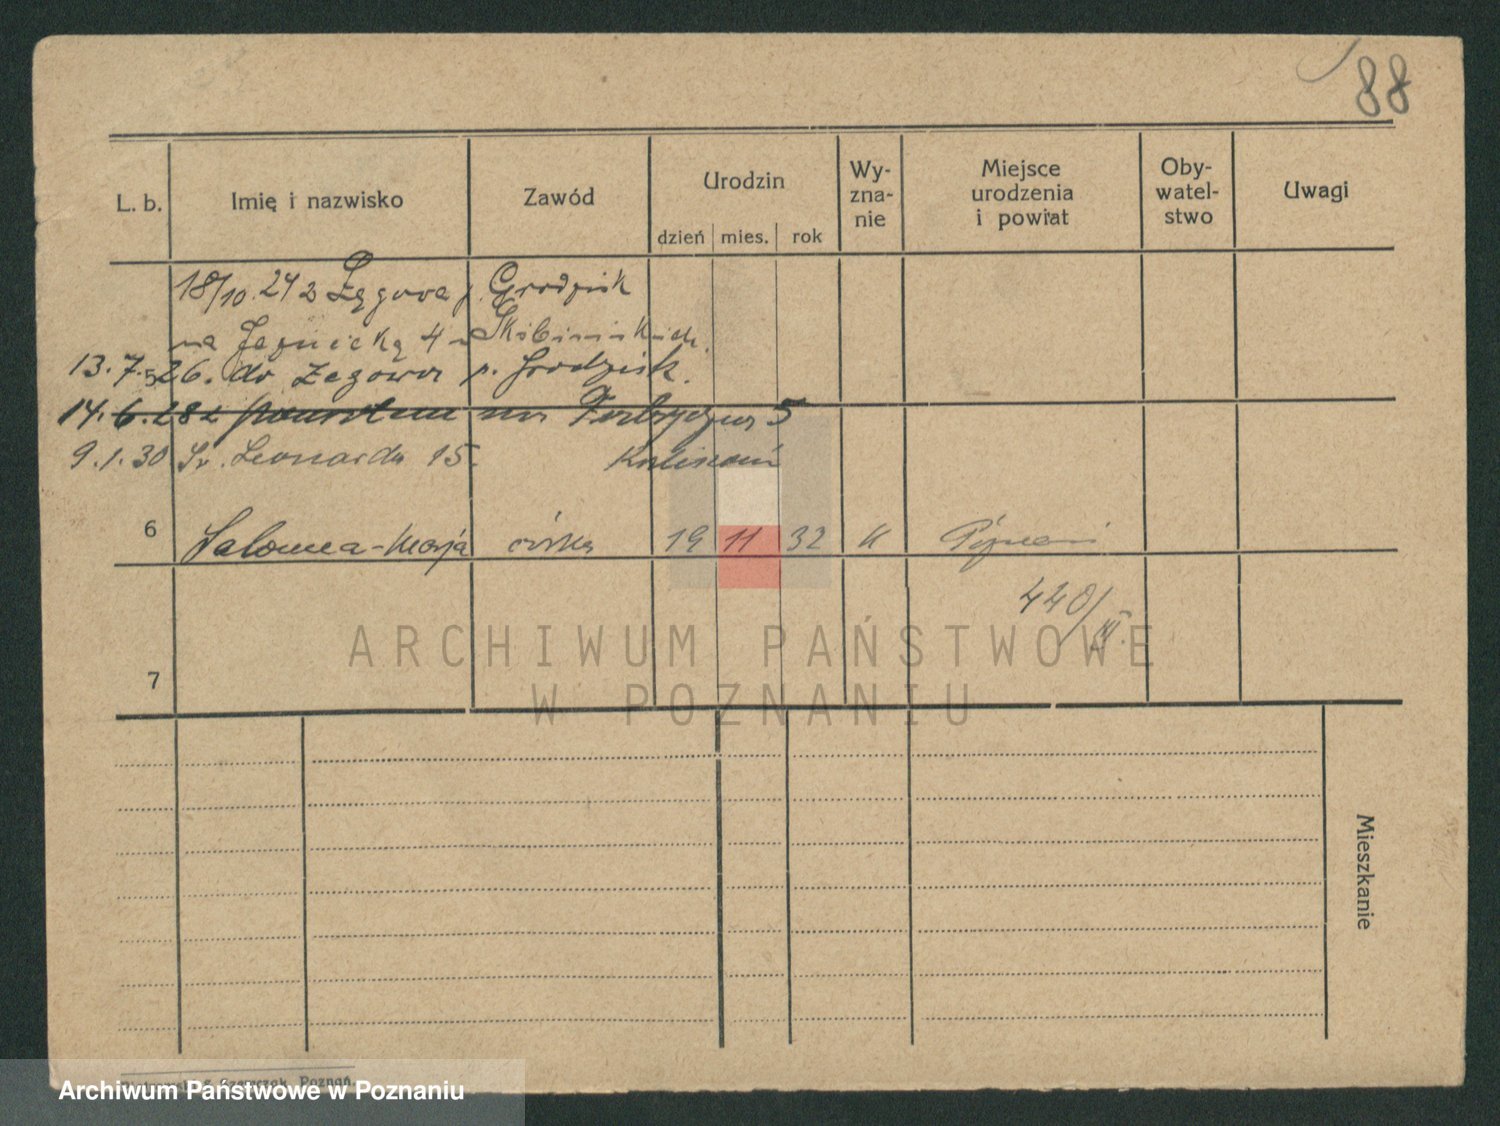 88
L. b. Imię i nazwisko Zawód Urodzin Wyznanie Miejsce urodzenia i powiat Obywatelstwo Uwagi
dzień mies. rok
18/10. 24 z p. Grodzisk
na 4
13.7.26. do p. Grodzisk.
5
14.6.28 z powrotem na 5
9.1.30 Św. Leonarda 15.
6 Salomea-Marja córka 19 11 32 K Poznań
440/III.
7
ARCHIWUM PAŃSTWOWE
W POZNANIU
Mieszkanie
Poznań
Archiwum Państwowe w Poznaniu